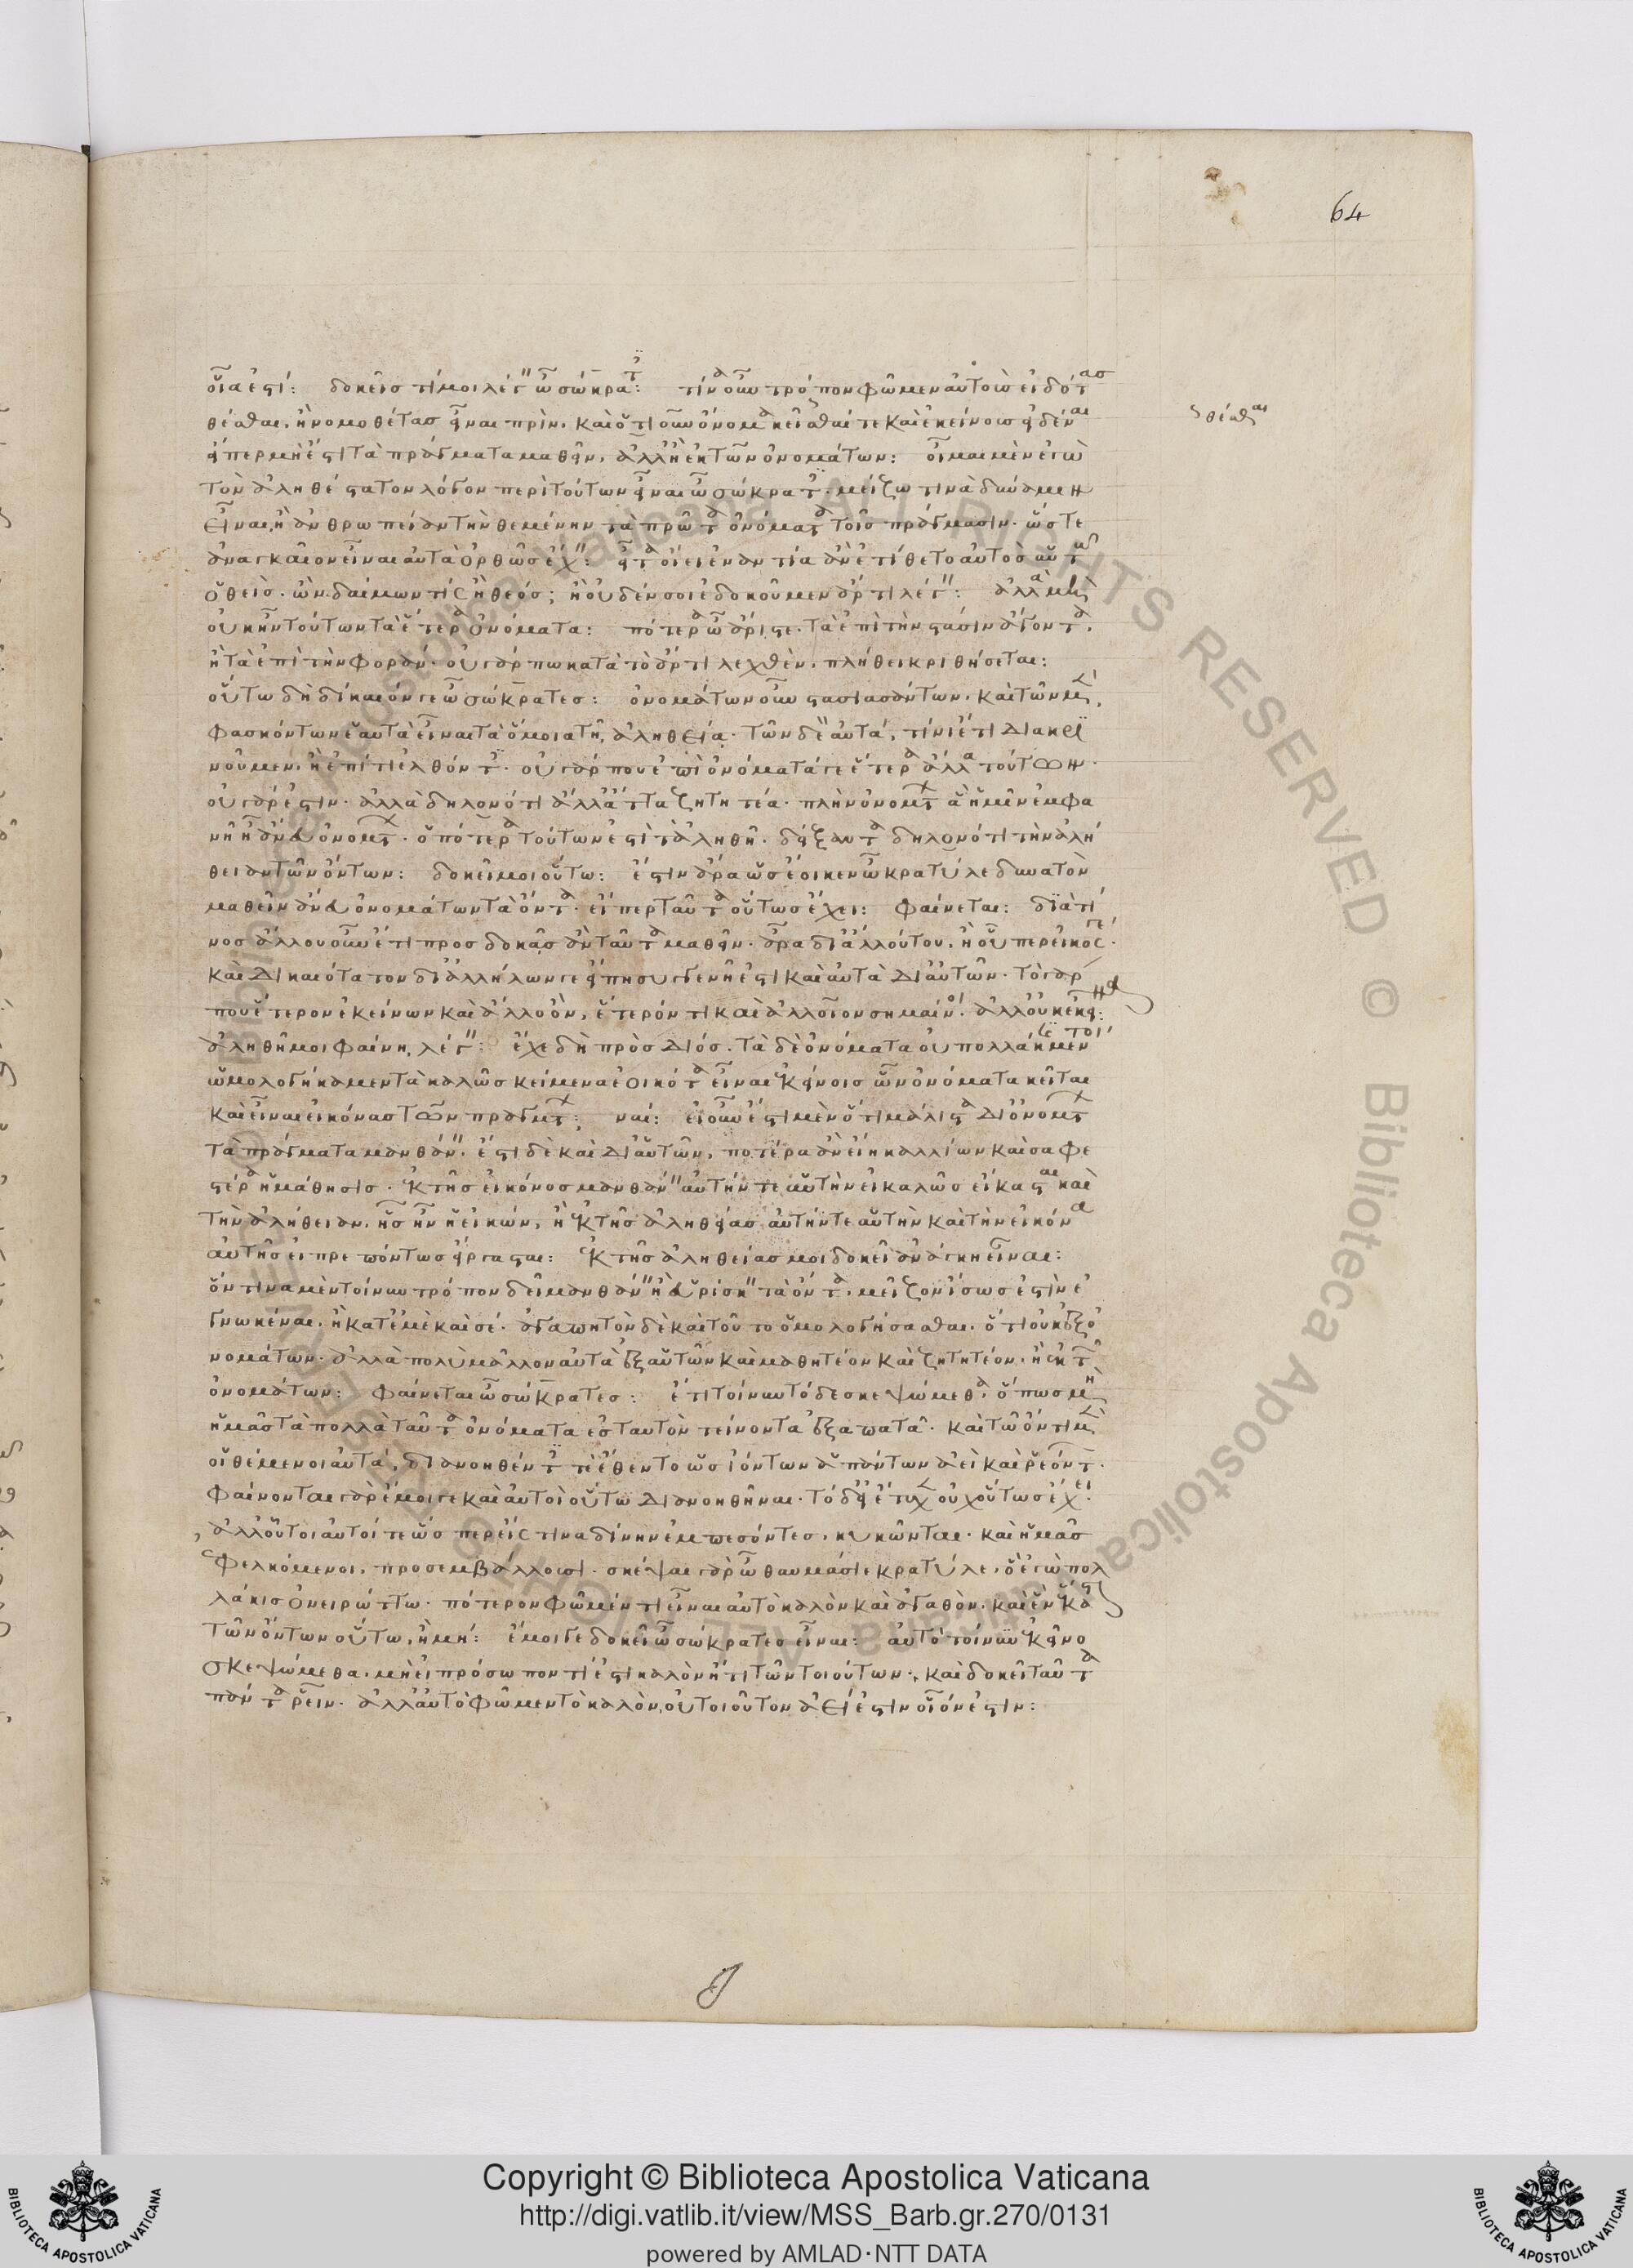 64
οἷα ἐστί: δοκεῖς τί μοι λέγειν ὦ σώκρατες: τίνα οὖν τρόπον φῶμεν αὐτοὺς εἰδότας
θέσθαι, ἢ νομοθέτας εἶναι πρὶν, καὶ ὁτιοῦν ὄνομα κεῖσθαί τε καὶ ἐκείνους εἰδέναι
εἴπερ μὴ ἔστι τὰ πράγματα μαθεῖν, ἀλλ' ἢ ἐκ τῶν ὀνομάτων: οἶμαι μὲν ἐγὼ
τὸν ἀληθέστατον λόγον περὶ τούτων εἶναι ὦ σώκρατες· μείζω τινὰ δύναμιν
εἶναι, ἢ ἀνθρωπείαν τὴν θεμένην τὰ πρῶτα ὀνόματα τοῖς πράγμασιν· ὥστε
ἀναγκαῖον εἶναι αὐτὰ ὀρθῶς ἔχειν: εἶτα οἴει ἐναντία ἂν ἐτίθετο αὐτὸς αὑτῶ
ὁ θεὶς· ὢν δαίμων τὶς ἢ θεός; ἢ οὐδέν σοι ἐδοκοῦμεν ἄρτι λέγειν: ἀλλὰ μὴ
οὐκ ἦν τούτων τὰ ἕτερα ὀνόματα: πότερα ὦ ἄριστε· τὰ ἐπὶ τὴν στάσιν ἄγοντα,
ἢ τὰ ἐπὶ τὴν φοράν· οὐ γάρ που κατὰ τὸ ἄρτι λεχθὲν, πλήθει κριθήσεται:
οὔτω δὴ δίκαιόν γε ὦ σώκρατες: ὀνομάτων οὖν στασιασάντων, καὶ τῶν μὲν,
φασκόντων ἑαυτὰ εἶναι τὰ ὅμοια τῇ ἀληθείᾳ· τῶν δ' ἑαυτά, τίνι ἔτι διακρι
νοῦμεν, ἢ ἐπὶ τί ἐλθόντες· οὐ γάρ που ἐπὶ ὀνόματά γε ἕτερα ἄλλα τούτων·
οὐ γάρ ἐστιν· ἀλλὰ δηλονότι ἄλλ' ἄττα ζητητέα· πλὴν ὀνομάτων ἃ ἡμῖν ἐμφα
νιεῖ ἄνευ ὀνομάτων· ὁπότερα τούτων ἐστὶ τἀληθῆ· δείξαντα δηλονότι τὴν ἀλή
θειαν τῶν ὄντων: δοκεῖ μοι οὕτω: ἔστιν ἄρα ὡς ἔοικεν ὦ κρατύλε δυνατὸν
μαθεῖν ἄνευ ὀνομάτων τὰ ὄντα· εἴπερ ταῦτα οὕτως ἔχει: φαίνεται: διὰ τί
νος ἄλλου οὖν ἔτι προσδοκᾷς ἂν ταῦτα μαθεῖν· ἆρα δι' ἄλλου του, ἢ οὗπερ εἰκός γε·
καὶ δικαιότατον δι' ἀλλήλων γε εἴ πῃ συγγενῆ ἐστὶ καὶ αὐτὰ δι' αὑτῶν· τὸ γάρ
που ἕτερον ἐκείνων καὶ ἄλλο ὂν, ἕτερόν τι καὶ ἀλλοῖον σημαίνοι· ἀλλ' οὐκ ἐκεῖνα:
ἀληθῆ μοι φαίνῃ λέγειν: ἔχε δὴ πρὸς διός· τὰ δὲ ὀνόματα οὐ πολλάκις μέντοι
ὡμολογήκαμεν τὰ καλῶς κείμενα ἐοικότα εἶναι ἐκείνοις ὧν ὀνόματα κεῖται
καὶ εἶναι εἰκόνας τῶν πραγμάτων: ναί: εἰ οὖν ἔστι μὲν ὅτι μάλιστα δι' ὀνομάτων
τὰ πράγματα μανθάνειν, ἔστι δὲ καὶ δι' αὑτῶν, ποτέρα ἂν εἴη καλλίων καὶ σαφε
στέρα ἡ μάθησις· ἐκ τῆς εἰκόνος μανθάνειν αὐτήν τε αὑτὴν εἰ καλῶς εἴκασται καὶ
τὴν ἀλήθειαν, ἧς ἦν ἡ εἰκών, ἢ ἐκ τῆς ἀληθείας αὐτήν τε αὑτὴν καὶ τὴν εἰκόνα
αὐτῆς εἰ πρεπόντως εἴργασται: ἐκ τῆς ἀληθείας μοι δοκεῖ ἀνάγκη εἶναι:
ὅντινα μὲν τοίνυν τρόπον δεῖ μανθάνειν ἢ εὑρίσκειν τὰ ὄντα, μεῖζον ἴσως ἐστὶν ἐ
γνωκέναι, ἢ κατ' ἐμὲ καὶ σέ· ἀγαπητὸν δὲ καὶ τοῦτο ὁμολογήσασθαι, ὅτι οὐκ ἐξ ὀ
νομάτων· ἀλλὰ πολὺ μᾶλλον αὐτὰ ἐξ αὑτῶν καὶ μαθητέον καὶ ζητητέον, ἢ ἐκ τῶν
ὀνομάτων: φαίνεται ὦ σώκρατες: ἔτι τοίνυν τόδε σκεψώμεθα, ὅπως μὴ
ἡμᾶς τὰ πολλὰ ταῦτα ὀνόματα ἐς ταυτὸν τείνοντα ἐξαπατᾷ· καὶ τῶ ὄντι μὲν
οἱ θέμενοι αὐτά, διανοηθέντες τε ἔθεντο ὡς ἰόντων ἁπάντων ἀεὶ καὶ ῥεόντων·
φαίνονται γὰρ ἔμοιγε καὶ αὐτοὶ οὕτω διανοηθῆναι· τὸ δ' εἰ ἔτυχεν οὐχ οὕτως ἔχει·
ἀλλ' οὗτοι αὐτοί τε ὥσπερ εἴς τινα δίνην ἐμπεσόντες, κυκῶνται· καὶ ἡμᾶς
ἐφελκόμενοι, προσεμβάλλουσι· σκέψαι γὰρ ὦ θαυμάσιε κρατύλε, ὃ ἐγὼ πολ
λάκις ὀνειρώττω· πότερον φῶμέν τι εἶναι αὐτὸ καλὸν καὶ ἀγαθὸν, καὶ ἓν ἕκαστον
τῶν ὄντων οὕτω, ἢ μή: ἔμοιγε δοκεῖ ὦ σώκρατες εἶναι: αὐτὸ τοίνυν ἐκεῖνο
σκεψώμεθα, μὴ εἰ πρόσωπόν τί ἐστι καλὸν ἤ τι τῶν τοιούτων, καὶ δοκεῖ ταῦτα
πάντα ῥεῖν· ἀλλ' αὐτὸ φῶμεν τὸ καλὸν, οὐ τοιοῦτον ἀεί ἐστιν οἷόν ἐστιν:
θέσθαι
Copyright © Biblioteca Apostolica Vaticana
http://digi.vatlib.it/view/MSS_Barb.gr.270/0131
powered by AMLAD·NTT DATA
BIBLIOTECA APOSTOLICA VATICANA
BIBLIOTECA APOSTOLICA VATICANA